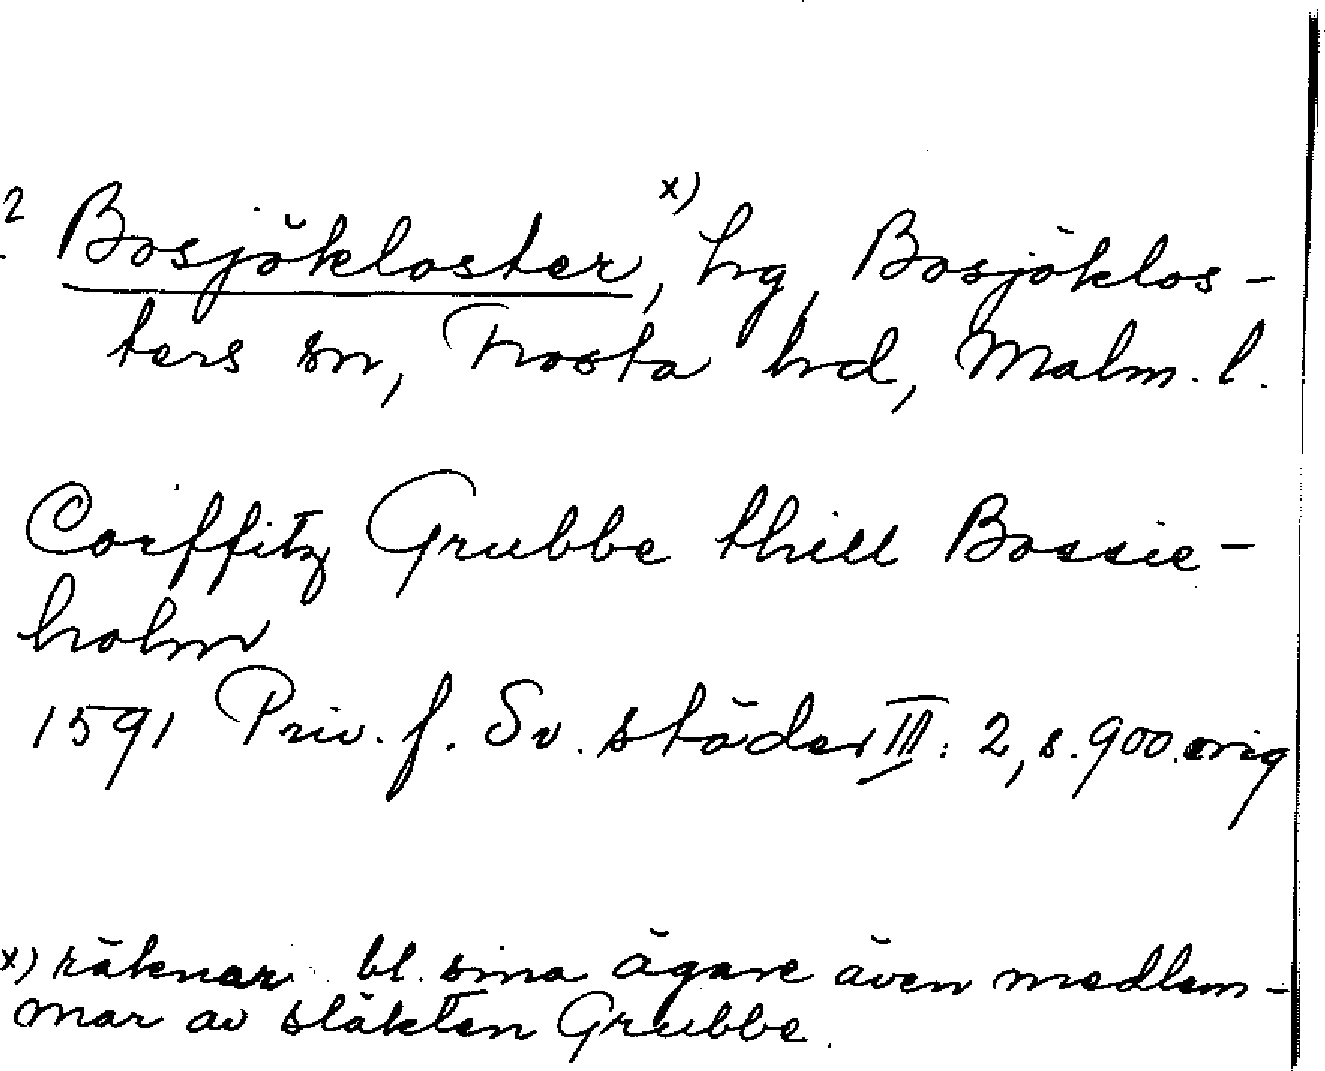 ? Bosjökloster, x) hg, Bosjöklos-
ters sn, Frosta hd, Malm. l.
Corffitz Grubbe thill Bossie-
holm
1591 Priv. f. Sv. städer III: 2, s. 900. orig
x) räknar bl. sina ägare även medlem-
mar av släkten Grubbe.